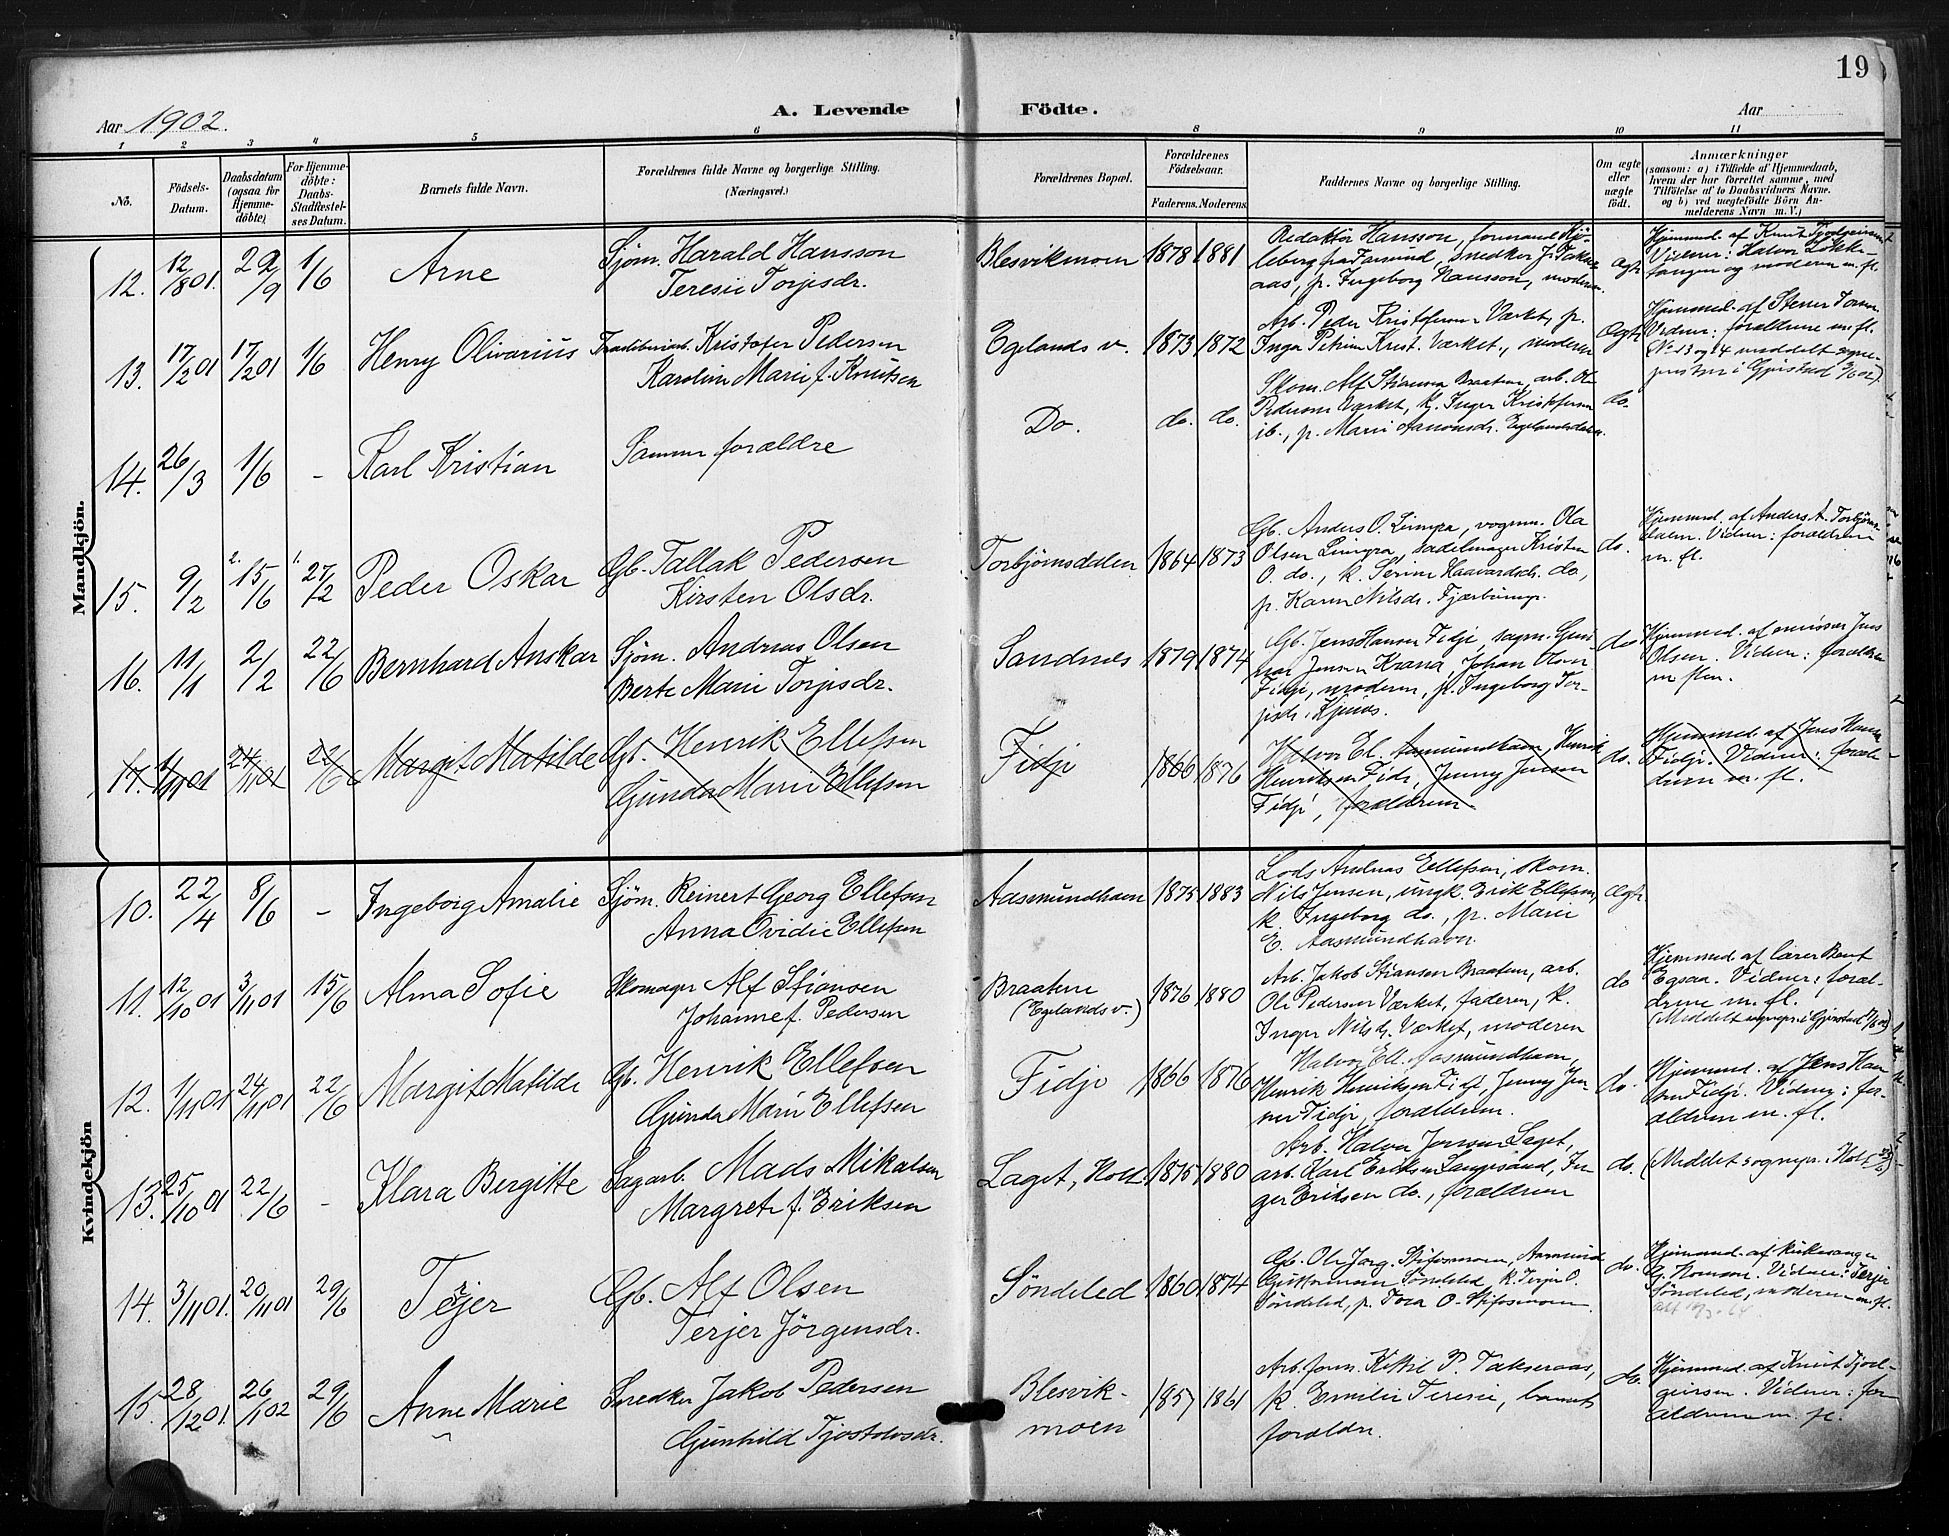 19
Aar 1902.
A. Levende Födte.
Aar
1 2 3 4 5 6 8 9 10 11
No.
Födsels-Datum.
Daabsdatum (ogsaa for Hjemmedöbte)
For Hjemmedöbte: Daabs-Stadfæstelses Datum.
Barnets fulde Navn.
Forældrenes fulde Navne og borgerlige Stilling. (Næringsvei.)
Forældrenes Bopæl.
Forældrenes Födselsaar.
Faderens. Moderens.
Faddernes Navne og borgerlige Stilling.
Om ægte eller uægte födt.
Anmærkninger
(saasom: a) i Tilfælde af Hjemmedaab,
hvem der har forrettet samme, med
Tilföielse af to Daabsvidners Navne.
og b) ved uægtefödte Börn An-
melderens Navn m. V.)
Mandkjön.
12. 12/8 01. 29/9 1/6 Arne Sjøm. Harald Hansson
Teresie Torjisdr.
Blesvikmoen 1878 1881
Redaktør Hansson, formand
leberg fra Farsund, Snedker J.
aas, p. Ingeborg Hansson, moderen.
ægte
Hjemmed. af Knut
Vidner: Halvor
og moderen m. fl.
13. 17/2 01 17/2 01 1/6 Henry Olivarius Kristofer Pedersen
Karoline Marie f. Knutsen
Egelands v. 1873 1872
Arb. Peder Kristofersen Værket, p.
Inga Petrine Krist. Værket, moderen
ægte
Hjemmed. af
Vidner: forældrene m. fl.
(No 13 og 14 meddelt sogne-
presten i Gjerstad 9/6 02).
14. 26/3 1/6 - Karl Kristian Samme forældre
Do. do. do.
Skom. Alf Stiansen Braaten, arb. Ole
Pedersen Værket, k. Inger Kristofersen
ib., p. Marie
do.
15. 9/2 2. 15/6 1. 27/2 Peder Oskar Gb. Tallak Pedersen
Kirsten Olsdr.
Torbjørnsdalen 1864 1873
Gb. Anders O. Limgra, vognm. Ola
Olsen Limgra, sadelmager Kristen
O. do., k. Serine Haavardsdr. do,
p. Karen Nilsdr.
do.
Hjemmed. af Anders A. Torbjørns-
dalen. Vidner: forældrene
m. fl.
16. 11/1 2/2 22/6 Bernhard Anskar Sjøm. Andreas Olsen
Berte Marie Torjisdr.
Sandnes 1879 1874
Gb. Jens Hansen Fidje, sagm. Gun-
nar Jensen Krana, Johan Olsen
Fidje, moderen, p. Ingeborg Tor-
jisdr.
do
Hjemmed. af emissær Jens
Olsen. Vidner: forældrene
m. flere.
17. 1/11 01 24/11 01 22/6 Margit Matilde Gb. Henrik Ellefsen
Gunda Marie Ellefsen
Fidje 1866 1876
Halvor El. Aasmundhavn, Henrik
Henriksen Fidje, Jenny Jensen
Fidje, forældrene
do.
Hjemmed. af Jens Hansen
Fidje. Vidner: foræl-
drene m. fl.
Kvindekjön
10. 22/4 8/6 - Ingeborg Amalie Sjøm. Reinert Georg Ellefsen
Anna Ovidie Ellefsen
Aasmundhavn 1875 1883
Lods Andreas Ellefsen, skom.
Nils Jensen, ungk. Erik Ellefsen,
k. Ingeborg do., p. Marie
E. Aasmundhavn.
ægte
11. 12/10 01 3/11 01 15/6 Alma Sofie Skomager Alf Stiansen
Johanne f. Pedersen
Braatene
(Egelands v.) 1876 1880
Arb. Jakob Stiansen Braaten, arb.
Ole Pedersen Værket, faderen, k.
Inger Nilsdr. Værket, moderen
do
Hjemmed af lærer Bent
Egsaa. Vidner: foræl-
drene m. fl.
(Meddelt sognepr. i Gjerstad /6 02)
12. 1/11 01 24/11 01 22/6 Margit Matilde Gb. Henrik Ellefsen
Gunda Marie Ellefsen
Fidje 1866 1876
Halvor Ell. Aasmundhavn,
Henrik Henriksen Fidje, Jenny Jen-
sen Fidje, forældrene.
do.
Hjemmed. af Jens Han
sen Fidje. Vidner: for-
ældrene m. fl.
13. 25/10 01 22/6 - Klara Bergitte Sagarb. Mads Mikalsen
Margrete f. Eriksen
Laget, Holt 1875 1880
Arb. Halvor Jensen Laget,
arb. Karl Eriksen Langesand, In-
ger Eriksen do., forældrene
do.
(Meddelt sognepr. Holt
14. 3/11 01. 20/11 01 29/6 Terjer Gb. Alf Olsen
Terjer Jörgensdr.
Söndeled 1860 1874
Gb. Ole Jørg. Stifosmoen, Aasmund
Guttormsen Söndeled, k. Terjer O.
Söndeled, p. Tora O. Stifosmoen.
do.
Hjemmed. af kirkesanger
Vidner: Terjer
Söndeled, moderen m. fl.
15. 28/12 01. 26/1 02 29/6 Anne Marie Snedker Jakob Pedersen
Gunhild Tjostolvsdr.
Blesvik-
moen 1857 1861
Arb. form. Kittil P. Takseraas,
k. Emilie Teresie, barnets
forældre.
do.
Hjemmed. af Knut Tjøl-
Vidner: for
ældrene m. fl.